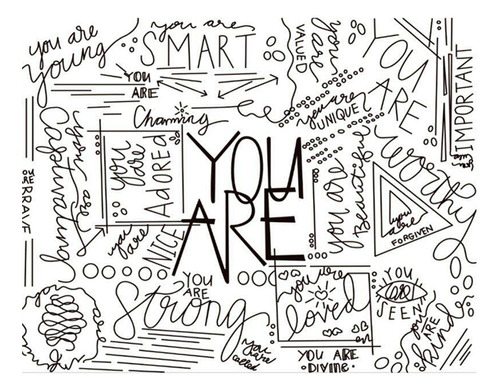 you are
young
you are
SMART
YOU
ARE
Charming
you are
VALUED
YOU
ARE
WORTHY
YOU ARE
IMPORTANT
you are
UNIQUE
you are
Captivating
YOU ARE
BRAVE
you are
Adored
you are
NICE
YOU
ARE
you are
Beautiful
you are
FORGIVEN
YOU
ARE
Strong
you are
loved
YOU
SEEN
you
ARE
kind
you are
called
YOU ARE
DIVINE